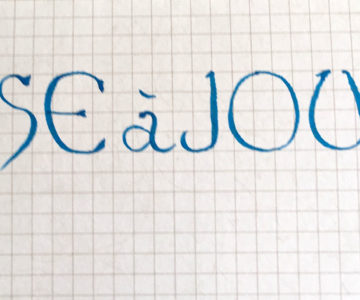 SE à JOU